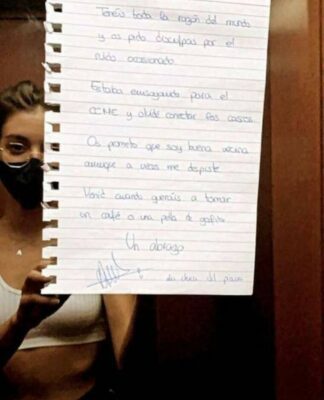 Tenéis toda la razón del mundo
y os pido disculpas por el
ruido ocasionado.
Estaba ensayando para el
CINE y olvidé conectar los cascos.
Os prometo que soy buena vecina
aunque a veces me despiste
Venid cuando queráis a tomar
un café o una peli de gafitas
Un abrazo
La chica del piano